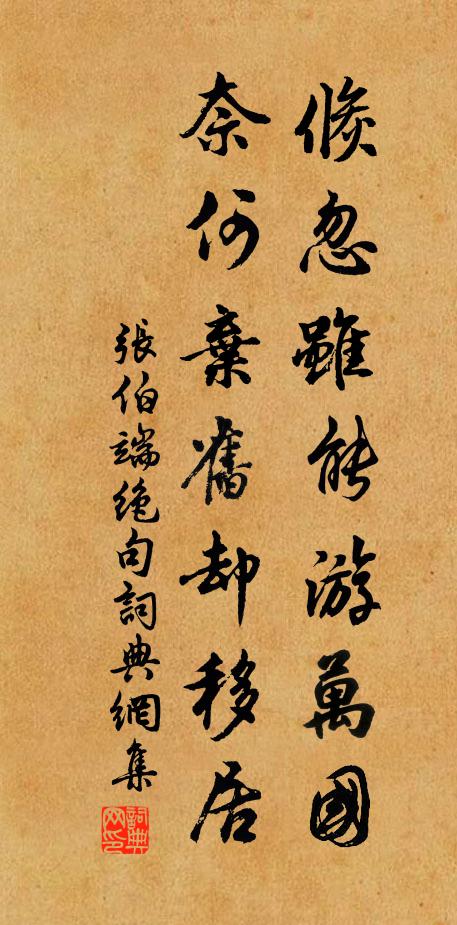 倏忽雖能游萬國
奈何棄舊却移居
張伯端絕句詞典網集
詞典网印